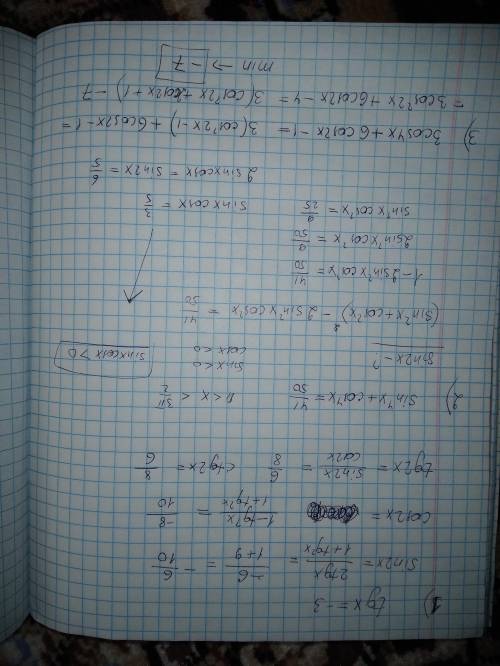 1) tgx = -3
sin2x = 2tgx / 1+tg²x = -6 / 1+9 = - 6/10
cos2x = 1-tg²x / 1+tg²x = -8/10
tg2x = sin2x / cos2x = 6/8 ctg2x = 8/6
2) sin⁴x + cos⁴x = 41/50 π < x < 3π/2
sin2x - ? sinx < 0 cosx < 0 sinxcosx > 0
(sin²x + cos²x)² - 2sin²x cos²x = 41/50
1 - 2sin²x cos²x = 41/50
2sin²x cos²x = 9/50
sin²x cos²x = 9/25 sinx cosx = 3/5
2sinxcosx = sin2x = 6/5
3) 3cos4x + 6cos2x - 1 = 3(cos²2x - 1) + 6cos2x - 1 =
= 3cos²2x + 6cos2x - 4 = 3(cos²2x + 2cos2x + 1) - 7
min → -7